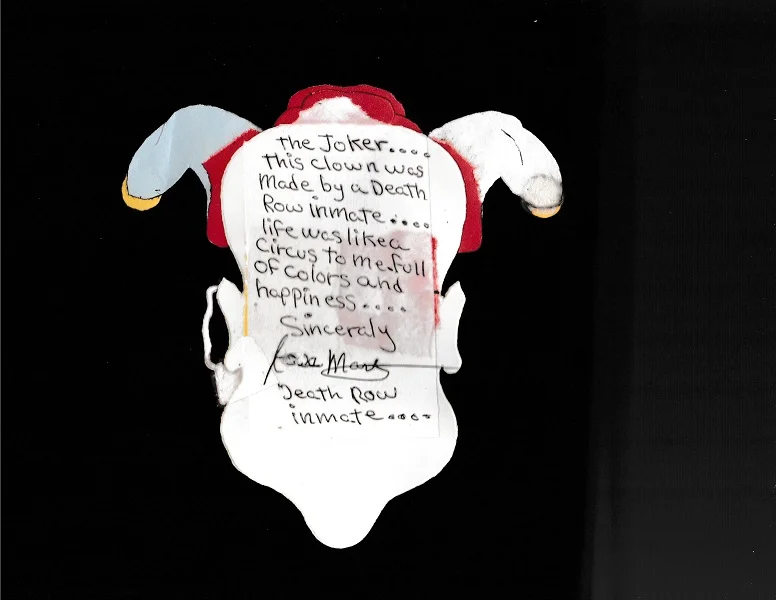 the Joker....
this clown was
Made by a Death
Row inmate....
life was like a
Circus to me. full
of colors and
happiness....
Sinceraly
Mark
Death Row
inmate....